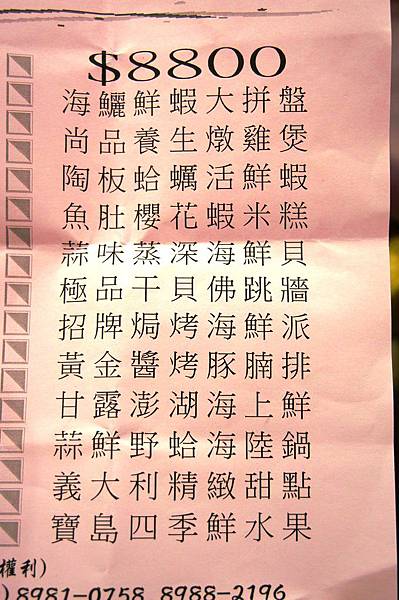 $8800
海鱺鮮蝦大拼盤
尚品養生燉雞煲
陶板蛤蠣活鮮蝦
魚肚櫻花蝦米糕
蒜味蒸深海鮮貝
極品干貝佛跳牆
招牌焗烤海鮮派
黃金醬烤豚腩排
甘露澎湖海上鮮
蒜鮮野蛤海陸鍋
義大利精緻甜點
寶島四季鮮水果
權利)
)8981-0758 8988-2196